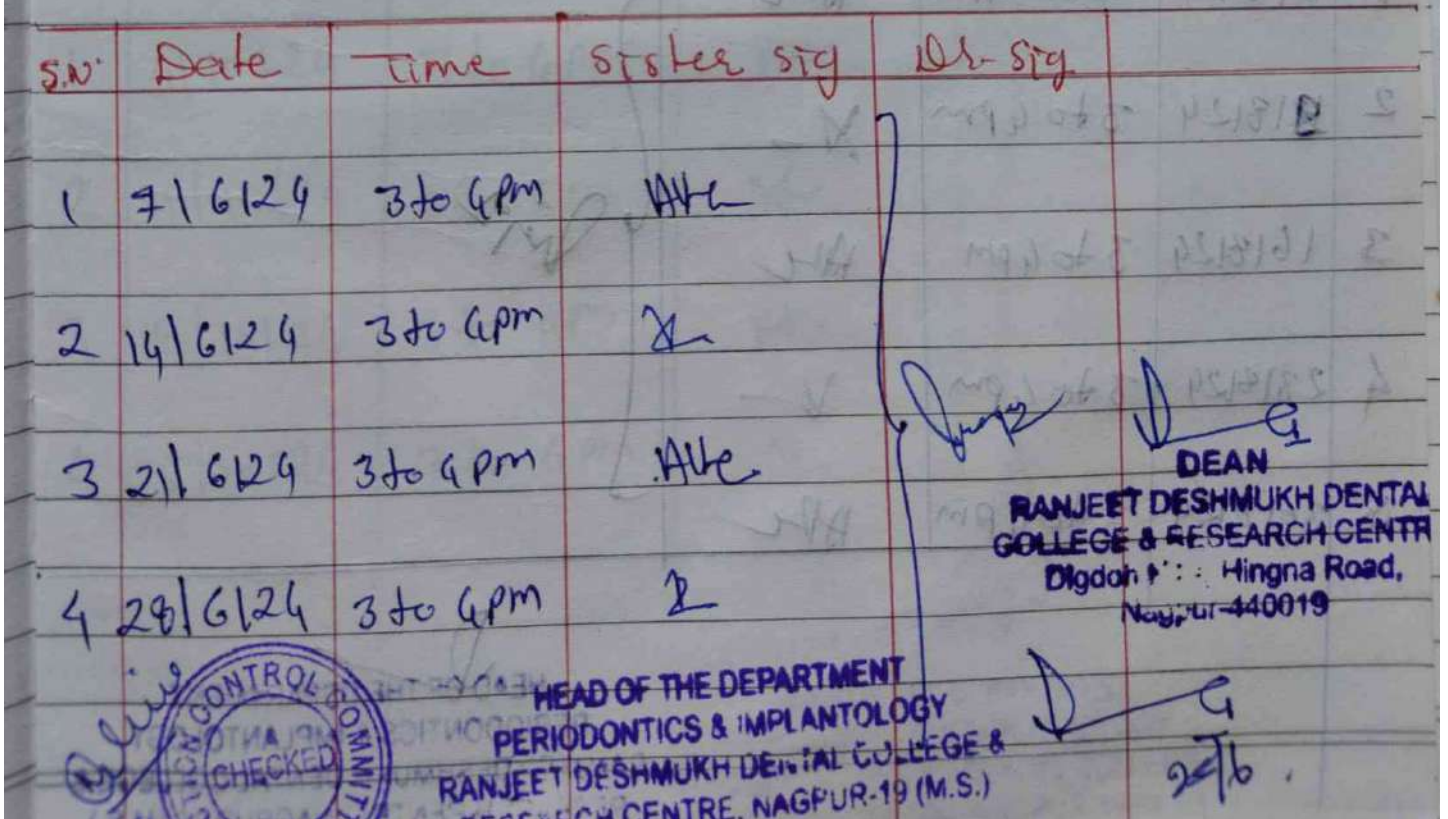 S.N. Date Time Sister sig Dr. sig
1 7/6/24 3 to 4 pm
2 14/6/24 3 to 4 pm
3 21/6/24 3 to 4 pm
DEAN
RANJEET DESHMUKH DENTAL
COLLEGE & RESEARCH CENTR
Digdoh Hingna Road,
Nagpur-440019
4 28/6/24 3 to 4 pm
HEAD OF THE DEPARTMENT
PERIODONTICS & IMPLANTOLOGY
RANJEET DESHMUKH DENTAL COLLEGE &
RESEARCH CENTRE, NAGPUR-19 (M.S.)
CONTROL COMMIT
CHECKED